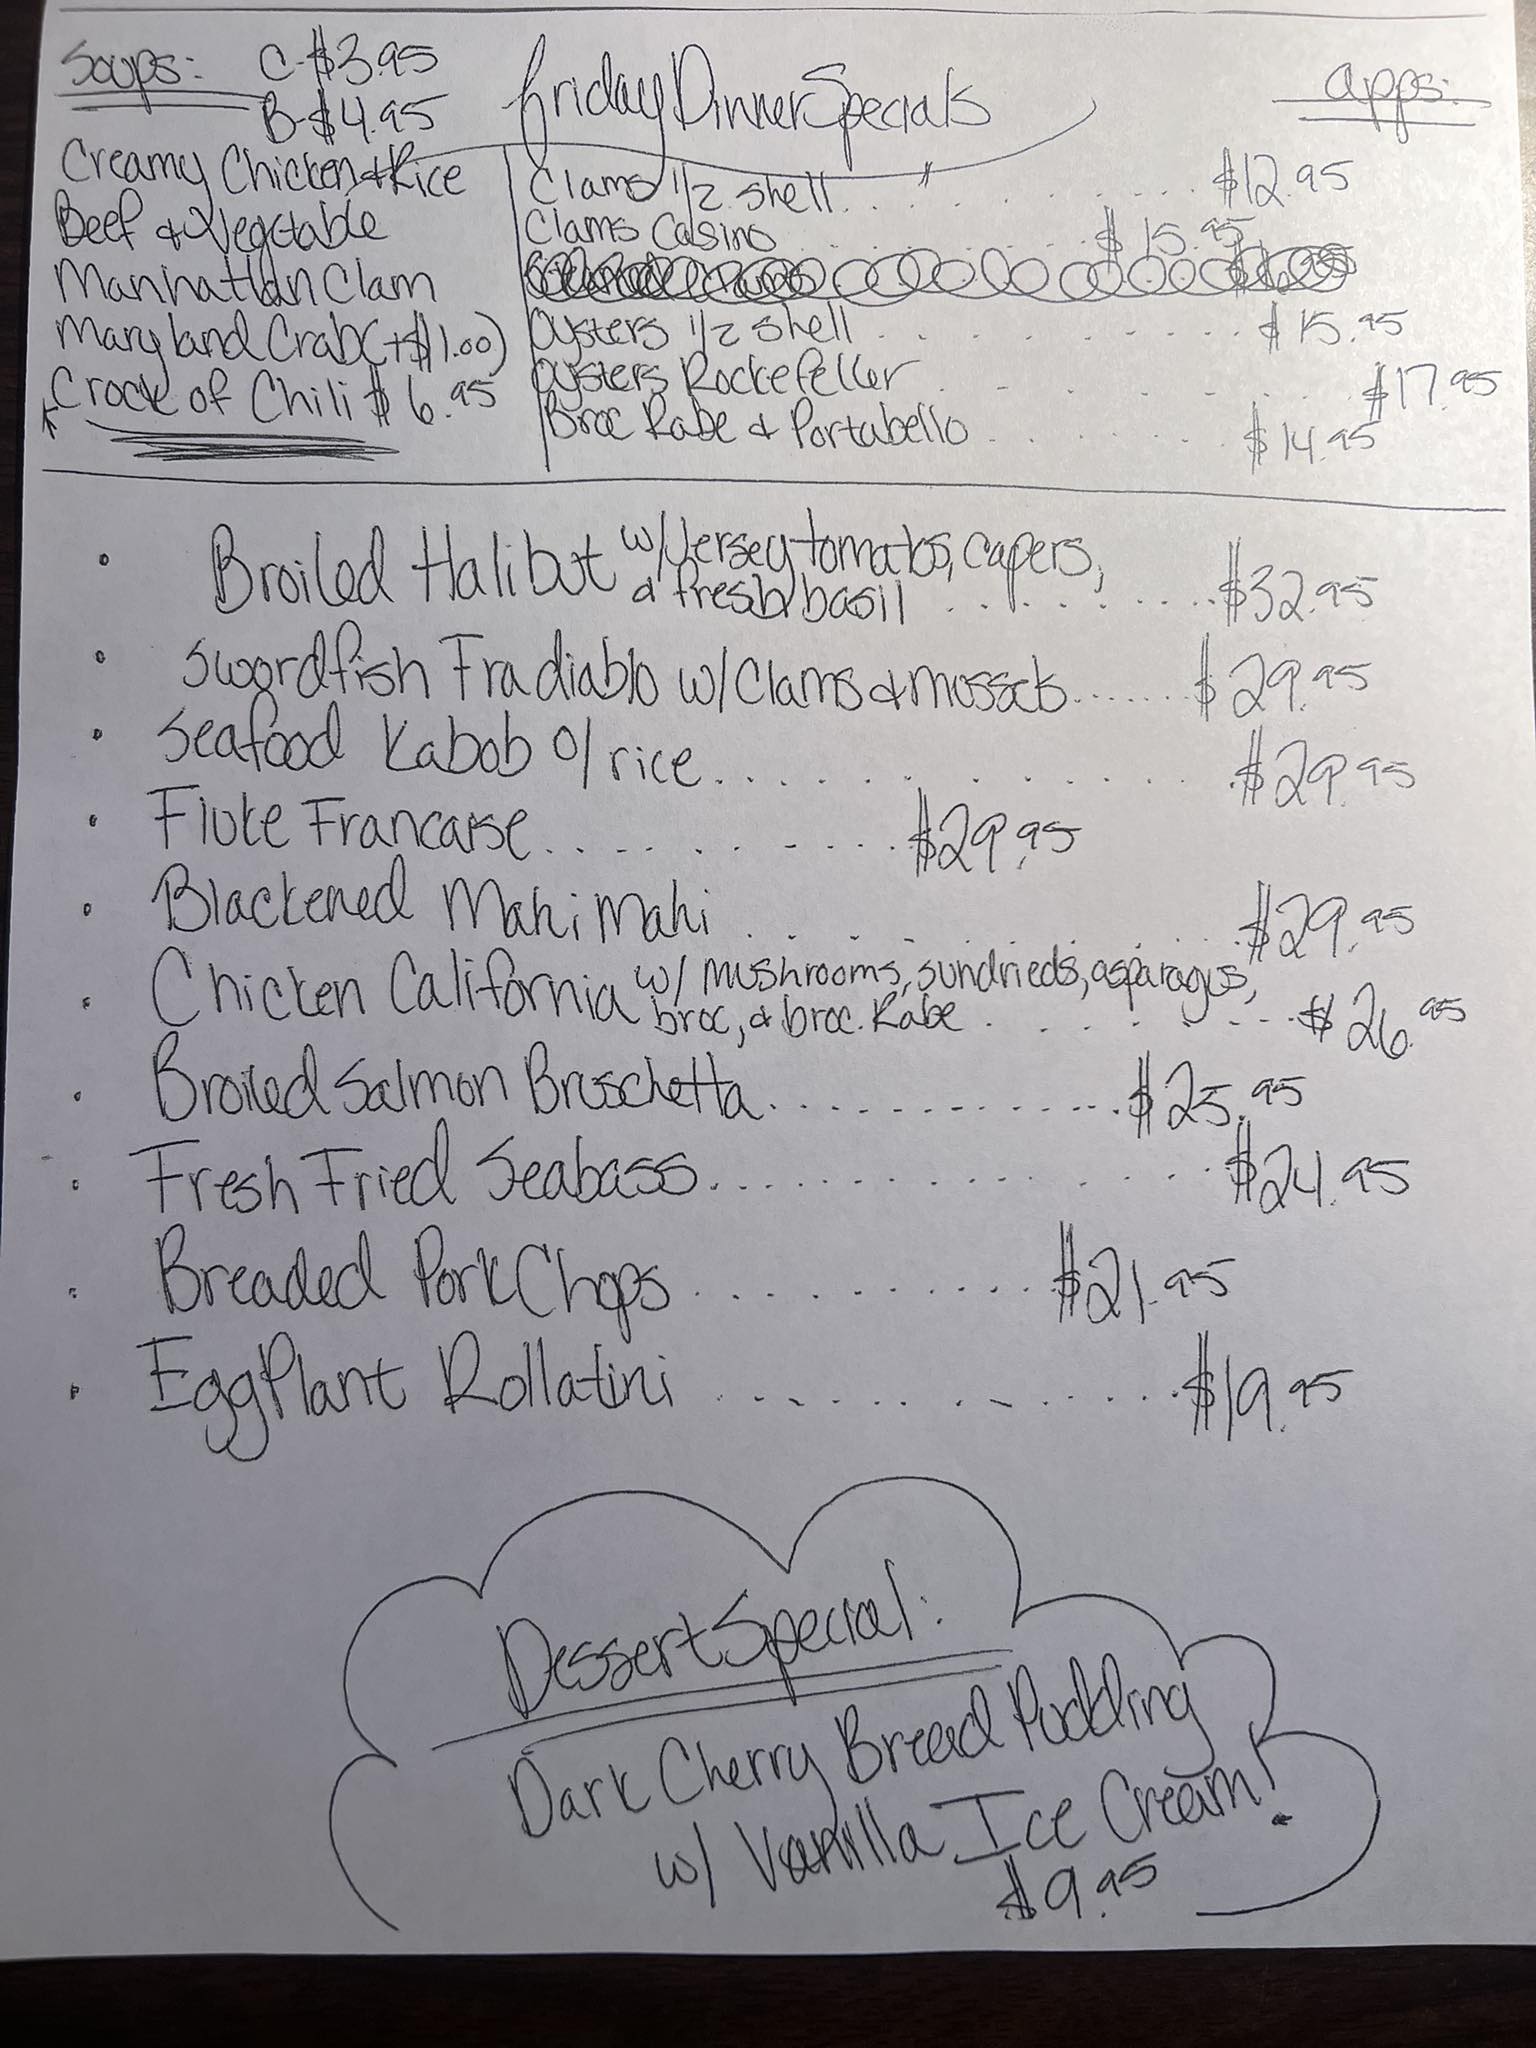 Soups: C-$3.95
B-$4.95
Friday Dinner Specials
Apps:
Creamy Chicken & Rice
Beef & Vegetable
Manhattan Clam
Maryland Crab (+$1.00)
Crock of Chili $6.95
Clams 1/2 shell . . . . . . . . . $12.95
Clams Casino . . . . . . . . $15.95
Oysters 1/2 shell . . . . . . . . $15.95
Oysters Rockefeller . . . . . . . . $17.95
Broc Rabe & Portabello . . . . . . . $14.95
• Broiled Halibut w/ Jersey tomatos, capers,
& fresh basil . . . . . . . . . $32.95
• Swordfish Fradiablo w/ Clams & mussels . . . . . . $29.95
• Seafood Kabob o/ rice . . . . . . . . . $29.95
• Fluke Francaise . . . . . . . . . . $29.95
• Blackened Mahi Mahi . . . . . . . . . . $29.95
• Chicken California w/ mushrooms, sundrieds, asparagus,
broc, & broc. Rabe . . . . . . . . . $26.95
• Broiled Salmon Bruschetta . . . . . . . . . . . . . $25.95
• Fresh Fried Seabass . . . . . . . . . . . . . . $24.95
• Breaded Pork Chops . . . . . . . . . . . $21.95
• EggPlant Rollatini . . . . . . . . . . . . $19.95
Dessert Special:
Dark Cherry Bread Pudding
w/ Vanilla Ice Cream!
$9.95